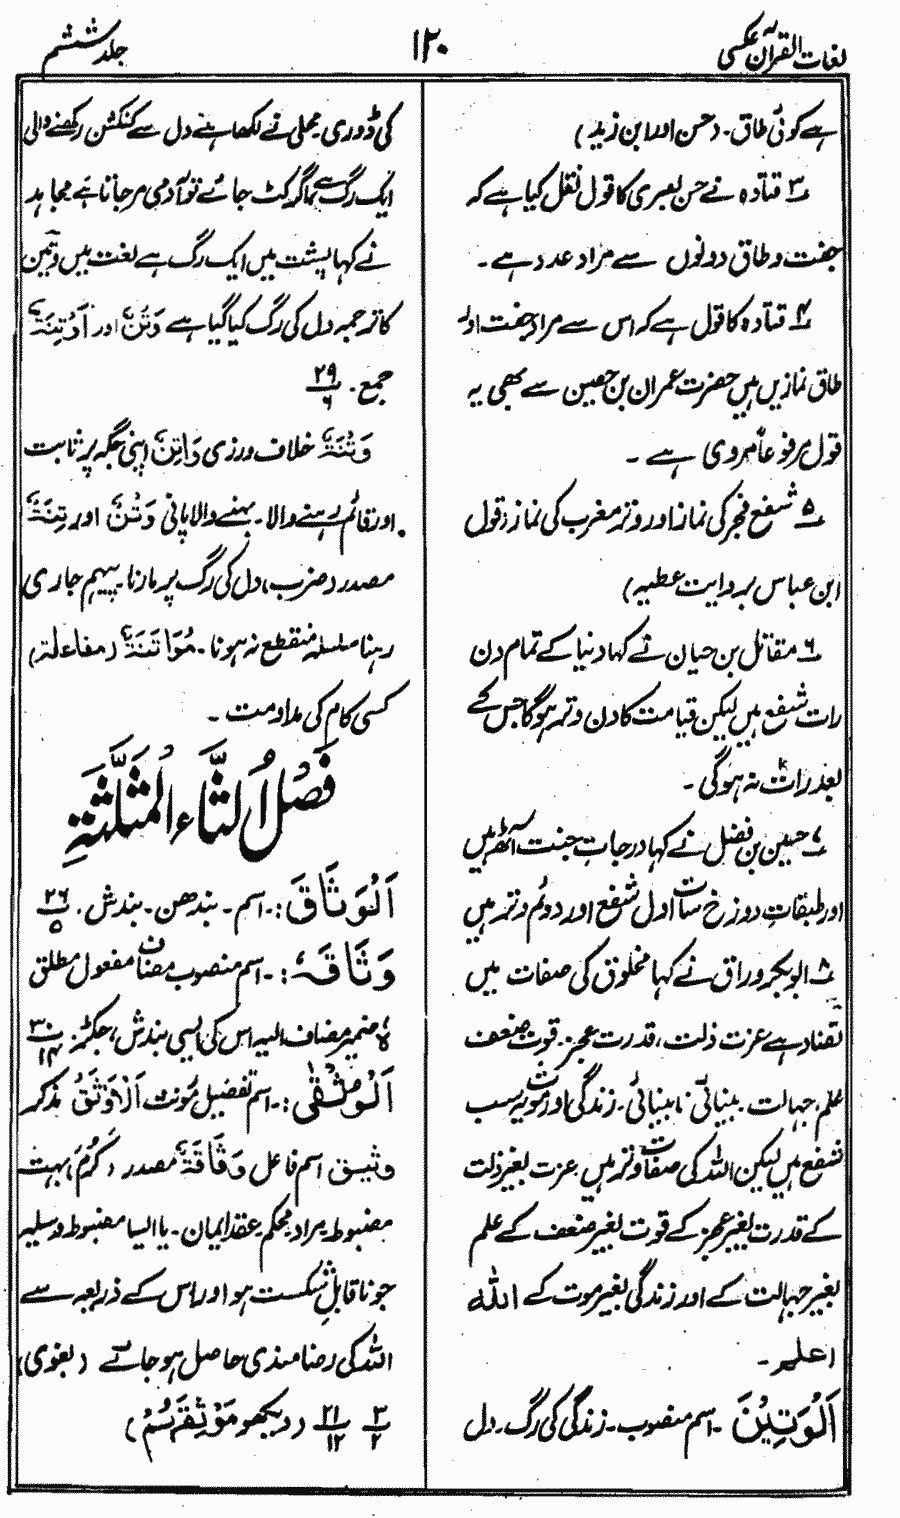 لغات القرآن عکسی
۱۲۰
جلد ششم
ہے کوئی طاق۔ (حسن اور ابن زید)
۳ قتادہ نے حسن بصری کا قول نقل کیا ہے کہ
جفت و طاق دونوں سے مراد عدد ہے۔
۴ قتادہ کا قول ہے کہ اس سے مراد جفت اور
طاق نمازیں ہیں حضرت عمران بن حصین سے بھی یہ
قول مرفوعاً مروی ہے۔
۵ شفع فجر کی نماز اور وتر مغرب کی نماز (قول
ابن عباس بروایت عطیہ)
۶ مقاتل بن حیان نے کہا دنیا کے تمام دن
رات شفع ہیں لیکن قیامت کا دن وتر ہوگا جس کے
بعد رات نہ ہوگی۔
۷ حسین بن فضل نے کہا درجات جنت آٹھ ہیں
اور طبقات دوزخ سات اول شفع اور دوئم وتر ہیں
۸ ابوبکر وراق نے کہا مخلوق کی صفات میں
تضاد ہے عزت ذلت، قدرت عجز۔ قوت ضعف
علم، جہالت۔ بینائی نابینائی۔ زندگی اور موت یہ سب
شفع ہیں لیکن اللہ کی صفات وتر ہیں۔ عزت بغیر ذلت
کے قدرت بغیر عجز کے قوت بغیر ضعف کے علم
بغیر جہالت کے اور زندگی بغیر موت کے اللہ
اعلم۔
اَلْوَتِیْنَ۔ اسم منصوب۔ زندگی کی رگ۔ دل
کی ڈوری۔ محلی نے لکھا ہے دل سے کنکشن رکھنے والی
ایک رگ ہے کہ اگر کٹ جائے تو آدمی مر جاتا ہے مجاہد
نے کہا پشت میں ایک رگ ہے لغت میں وتین
کا ترجمہ دل کی رگ کیا گیا ہے وُتُنٌ اور اَوْتِنَۃٌ
جمع۔ ۲۹/۶
وَتُنَۃٌ خلاف ورزی وَاتِنٌ اپنی جگہ پر ثابت
اور قائم رہنے والا۔ بہنے والا پانی وَتْنٌ اور تِنَۃٌ
مصدر (ضرب) دل کی رگ پر مارنا۔ پیہم جاری
رہنا سلسلہ منقطع نہ ہونا۔ مُوَاتَنَۃٌ (مفاعلۃ)
کسی کام کی مداومت۔
فَصْلُ الثَّاءِ الْمُثَلَّثَۃِ
اَلْوَثَاقَ :۔ اسم۔ بندھن۔ بندش۔ ۲۶/۵
وَثَاقَہٗ :۔ اسم منصوب مضاف مفعول مطلق
ہٗ ضمیر مضاف الیہ اس کی ایسی بندش، جکڑ ۳۰/۱۴
اَلْوُثْقٰی :۔ اسم تفضیل مؤنث اَلْاَوْثَقُ مذکر
وثیق اسم فاعل وَثَاقَۃٌ مصدر (کَرُمَ) بہت
مضبوط۔ مراد محکم عقد ایمان۔ یا ایسا مضبوط وسلیہ
جو ناقابل شکست ہو اور اس کے ذریعہ سے
اللہ کی رضا مندی حاصل ہو جائے (بغوی)
۳/۲ ۲۱/۱۲ (دیکھو مَوْثِقَہُمْ)